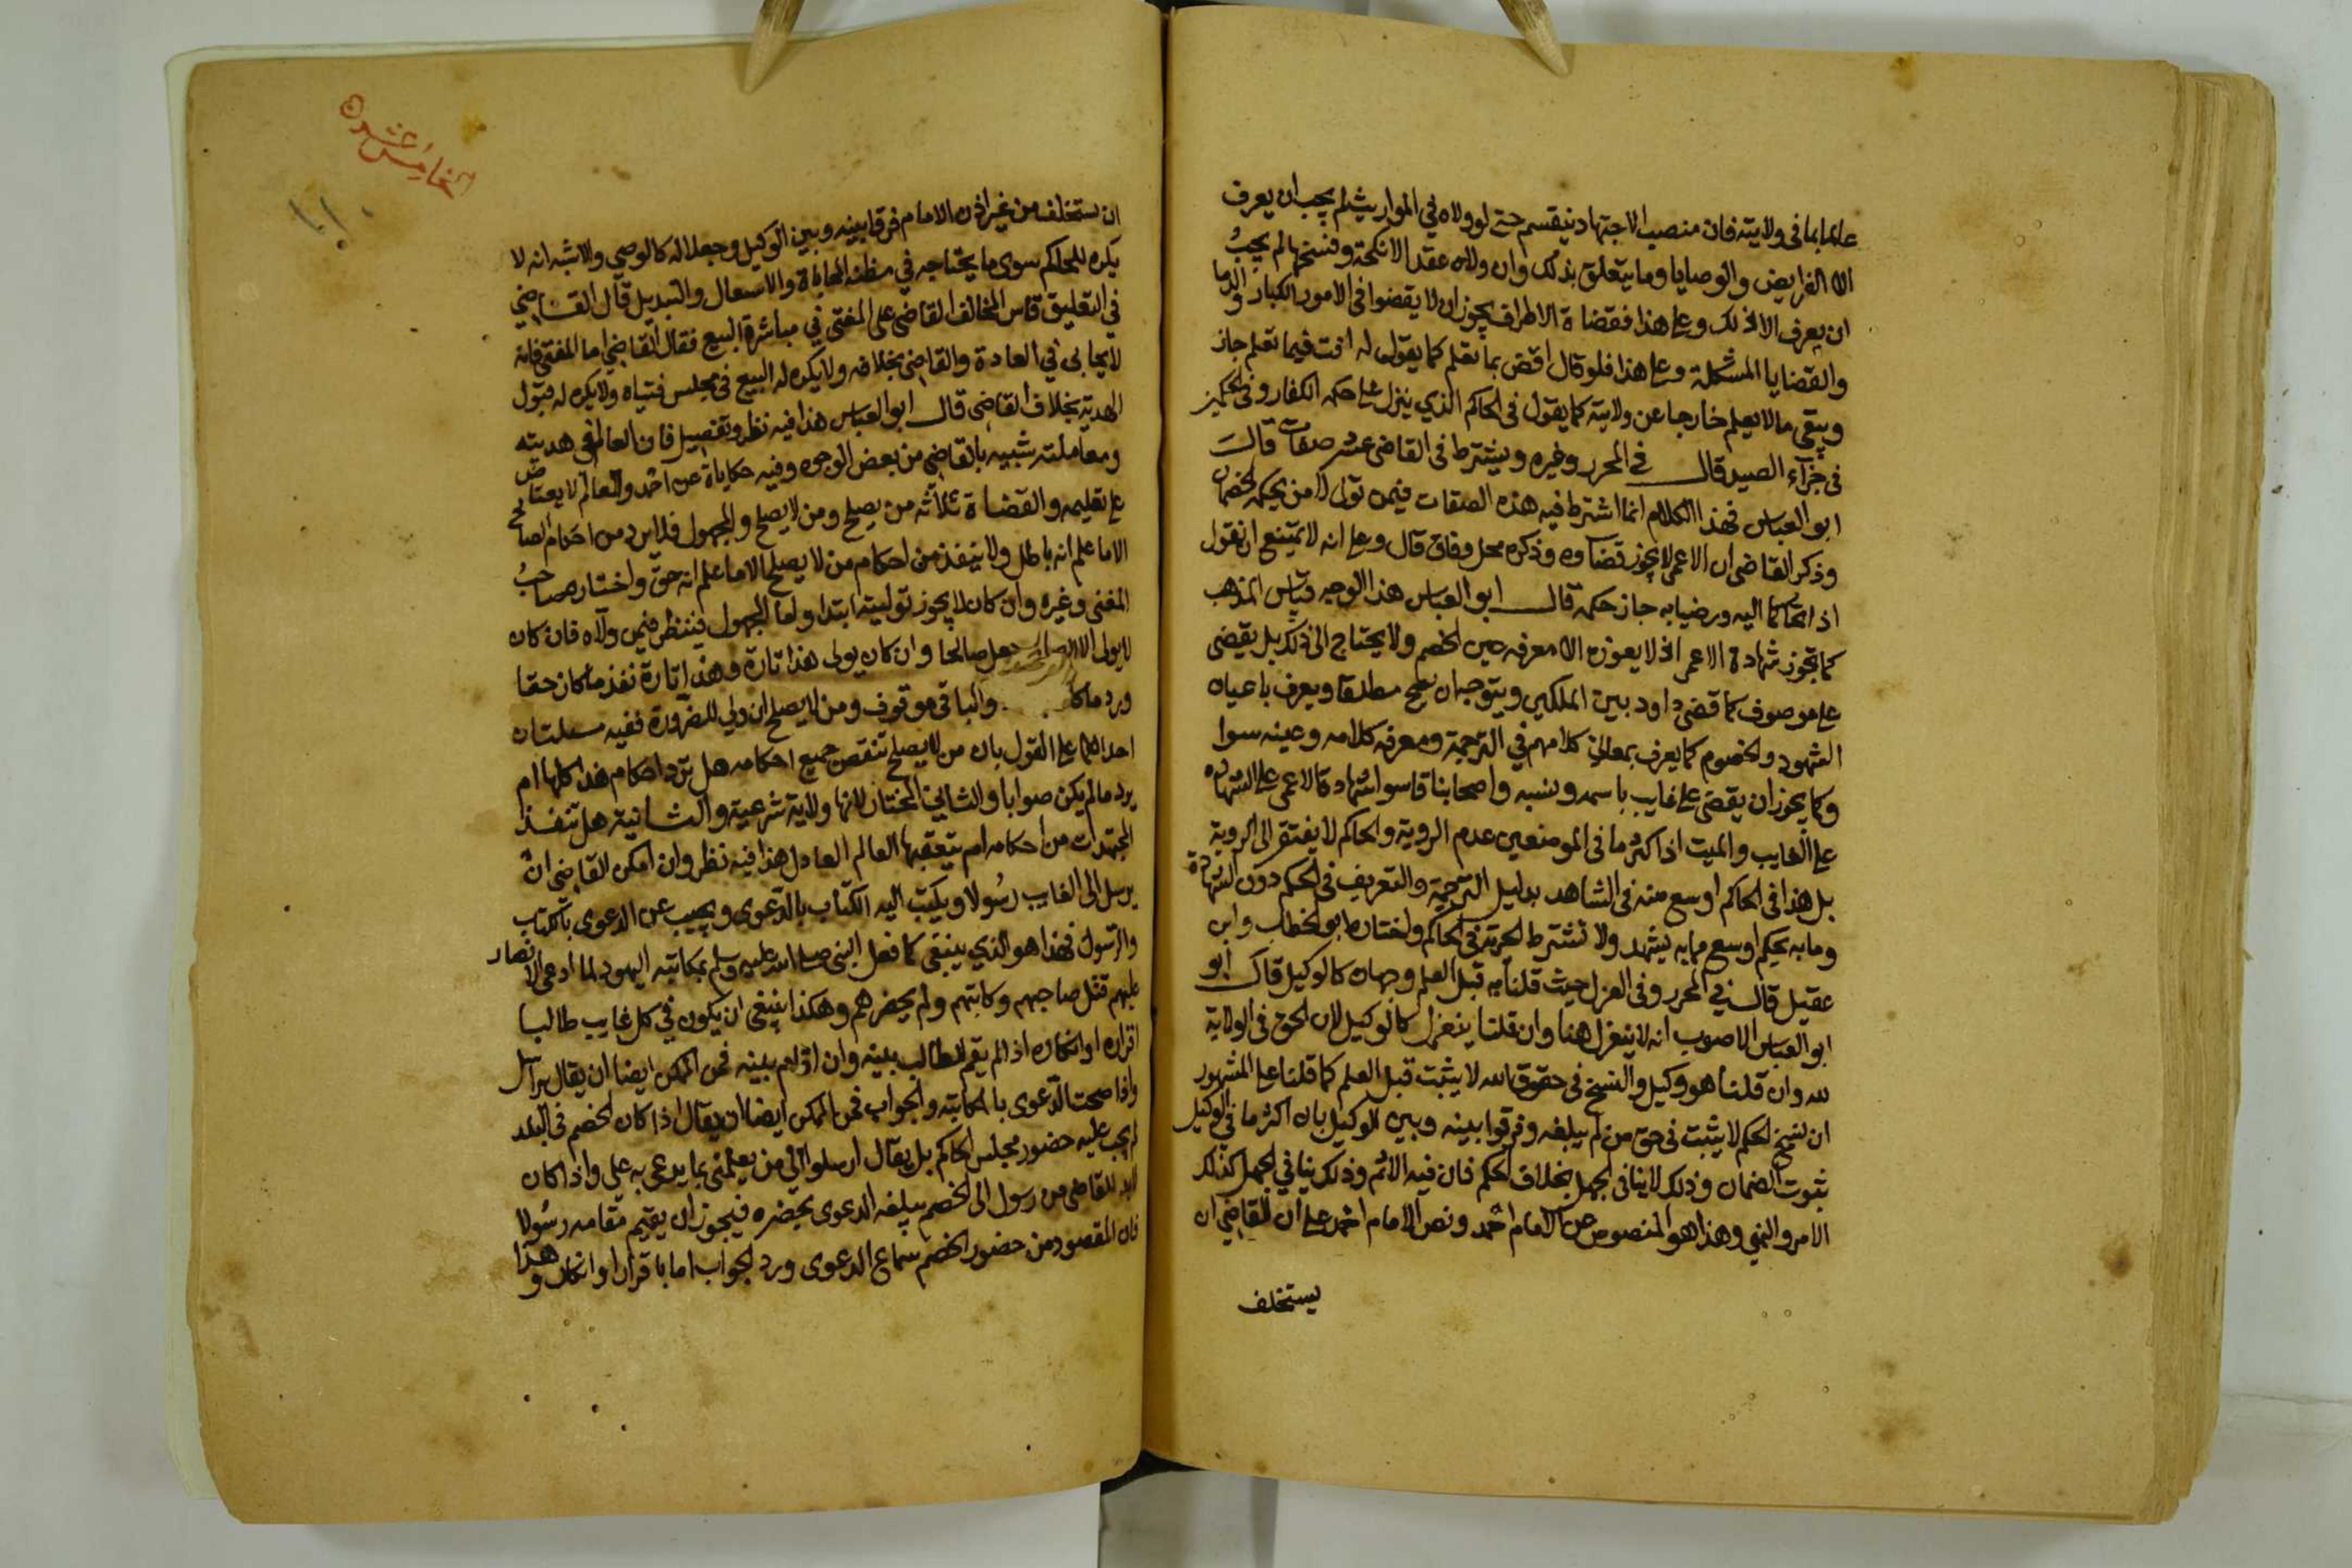 عالما بما في ولايته فان منصب الاجتهاد ينقسم حتى لو ولاه في المواريث لم يجب ان يعرف
الا الفرايض والوصايا وما يتعلق بذلك وان ولاه عقد الانكحة وفسخها لم يجبُ
ان يعرف الا ذلك وعلى هذا فقضاة الاطراف يجوز ان لا يقضوا في الامور الكبار والدما
والقضايا المشكلة وعلى هذا فلو قال اقض بما تعلم كما يقول له افت فيما تعلم جاز
ويبقى ما لا يعلم خارجا عن ولايته كما يقول في الحاكم الذي ينزل على حكمه الكفار وفي الحكمين
في جزآء الصيد قال في المحرر وغيره ويشترط في القاضي عشر صفات قال
ابو العباس فهذا الكلام انما اشترط فيه هذه الصفات فيمن تولى لا من يحكمه الخصمان
وذكر القاضي ان الاعمى لا يجوز قضاوه وذكره محل وفاق قال وعلى انه لا يمتنع ان نقول
اذا تحاكما اليه ورضيا به جاز حكمه قال ابو العباس هذا الوجه قياس المذهب
كما تجوز شهادة الاعمى اذ لا يعوزه الا معرفة عين الخصم ولا يحتاج الى ذلك بل يقضي
على موصوف كما قضى داود بين الملكين ويتوجه ان يصح مطلقا ويعرف باعيان
الشهود والخصوم كما يعرف بمعاني كلامهم في الترجمة ومعرفة كلامه وعينه سوا
وكما يجوز ان يقضى على غايب باسمه ونسبه واصحابنا قاسوا شهادة الاعمى على الشهاده
على الغايب والميت اذ اكثر ما في الموضعين عدم الروية والحاكم لا يفتقر الى الروية
بل هذا في الحاكم اوسع منه في الشاهد بدليل الترجمة والتعريف في الحكم دون الشهادة
وما به يحكم اوسع مما به يشهد ولا تشترط الحرية في الحاكم واختاره ابو الخطاب وابن
عقيل قال في المحرر وفي العزل حيث قلنا به قبل العلم وجهان كالوكيل قال ابو
ابو العباس الاصوب انه لا ينعزل هنا وان قلنا ينعزل كالوكيل لان الحق في الولاية
لله وان قلنا هو وكيل والنسخ في حقوق الله لا يثبت قبل العلم كما قلنا على المشهور
ان نسخ الحكم لا يثبت في حق من لم يبلغه وفرقوا بينه وبين الوكيل بان اكثر ما في الوكيل
ثبوت الضمان وذلك لا ينافي الجهل بخلاف الحكم فان فيه الاثم وذلك ينافي الجهل كذلك
الامر والنهي وهذا هو المنصوص عن الامام احمد ونص الامام احمد على ان للقاضي ان
يستخلف
الخامس عشره
ان يستخلف من غير اذن الامام فرقا بينه وبين الوكيل وجعلا له كالوصي والاشبه انه لا
يكره للحاكم سوى ما يحتاجه في مظنة المحاباة والاستعال والتبديل قال القاضي
في التعليق قاس المخالف القاضي على المفتي في مباشرة البيع فقال القاضي اما المفتي فانه
لا يحابى في العادة والقاضي بخلافه ولا يكره له البيع في مجلس فتياه ولا يكره له قبول
الهدية بخلاف القاضي قال ابو العباس هذا فيه نظر وتفصيل فان العالم في هديته
ومعاملته شبيه بالقاضي من بعض الوجوه وفيه حكاياة عن احمد والعالم لا يعتاض
على تعليمه والقضاة ثلاثه من يصلح ومن لا يصلح والمجهول فلا يرد من احكام الصالح
الا ما علم انه باطل ولا ينفذ من احكام من لا يصلح الا ما علم انه حق واختار صاحبُ
المغني وغيره وان كان لا يجوز توليته ابتدا واما المجهول فينظر فيمن ولاه فان كان
لا يولى الا الصالح جعل صالحا وان كان يولى هذا تارة وهذا تارة نفذ ما كان حقا
ورد ما كا والباقي موقوف ومن لا يصلح ان ولي للضرورة ففيه مسلتان
احداهما على القول بان من لا يصلح تنقض جميع احكامه هل ترد احكام هذا كلها ام
يرد ما لم يكن صوابا والثاني المختار لانها ولاية شرعية والثانية هل تنفذ
المجتهدات من احكامه ام يتعقبها العالم العادل هذا فيه نظر وان امكن القاضي ان
يرسل الى الغايب رسُولا ويكتب اليه الكتاب بالدعوى ويجيب عن الدعوى بالكتاب
والرسول فهذا هو الذي ينبغي كما فعل النبي صلى الله عليه وسلم بمكاتبة اليهود لما ادعى الانصار
عليهم قتل صاحبهم وكاتبهم ولم يحضرهم وهكذا ينبغي ان يكون في كل غايب طالبا
اقراره او انكاره اذا لم يقم الطالب بينه وان اقام بينه فمن الممكن ايضا ان يقال يراسل
واذا صحت الدعوى بالمكاتبة والجواب فمن الممكن ايضا ان يقال اذا كان الخصم في البلد
لم يجب عليه حضور مجلس الحاكم بل يقال ارسلوا الي من يعلمني بما يدعى به علي واذا كان
لابد للقاضي من رسول الى الخصم يبلغه الدعوى بحضره فيجوز ان يقيم مقامه رسُولا
فان المقصود من حضور الخصم سماع الدعوى ورد الجواب اما باقرار او انكار وهذا